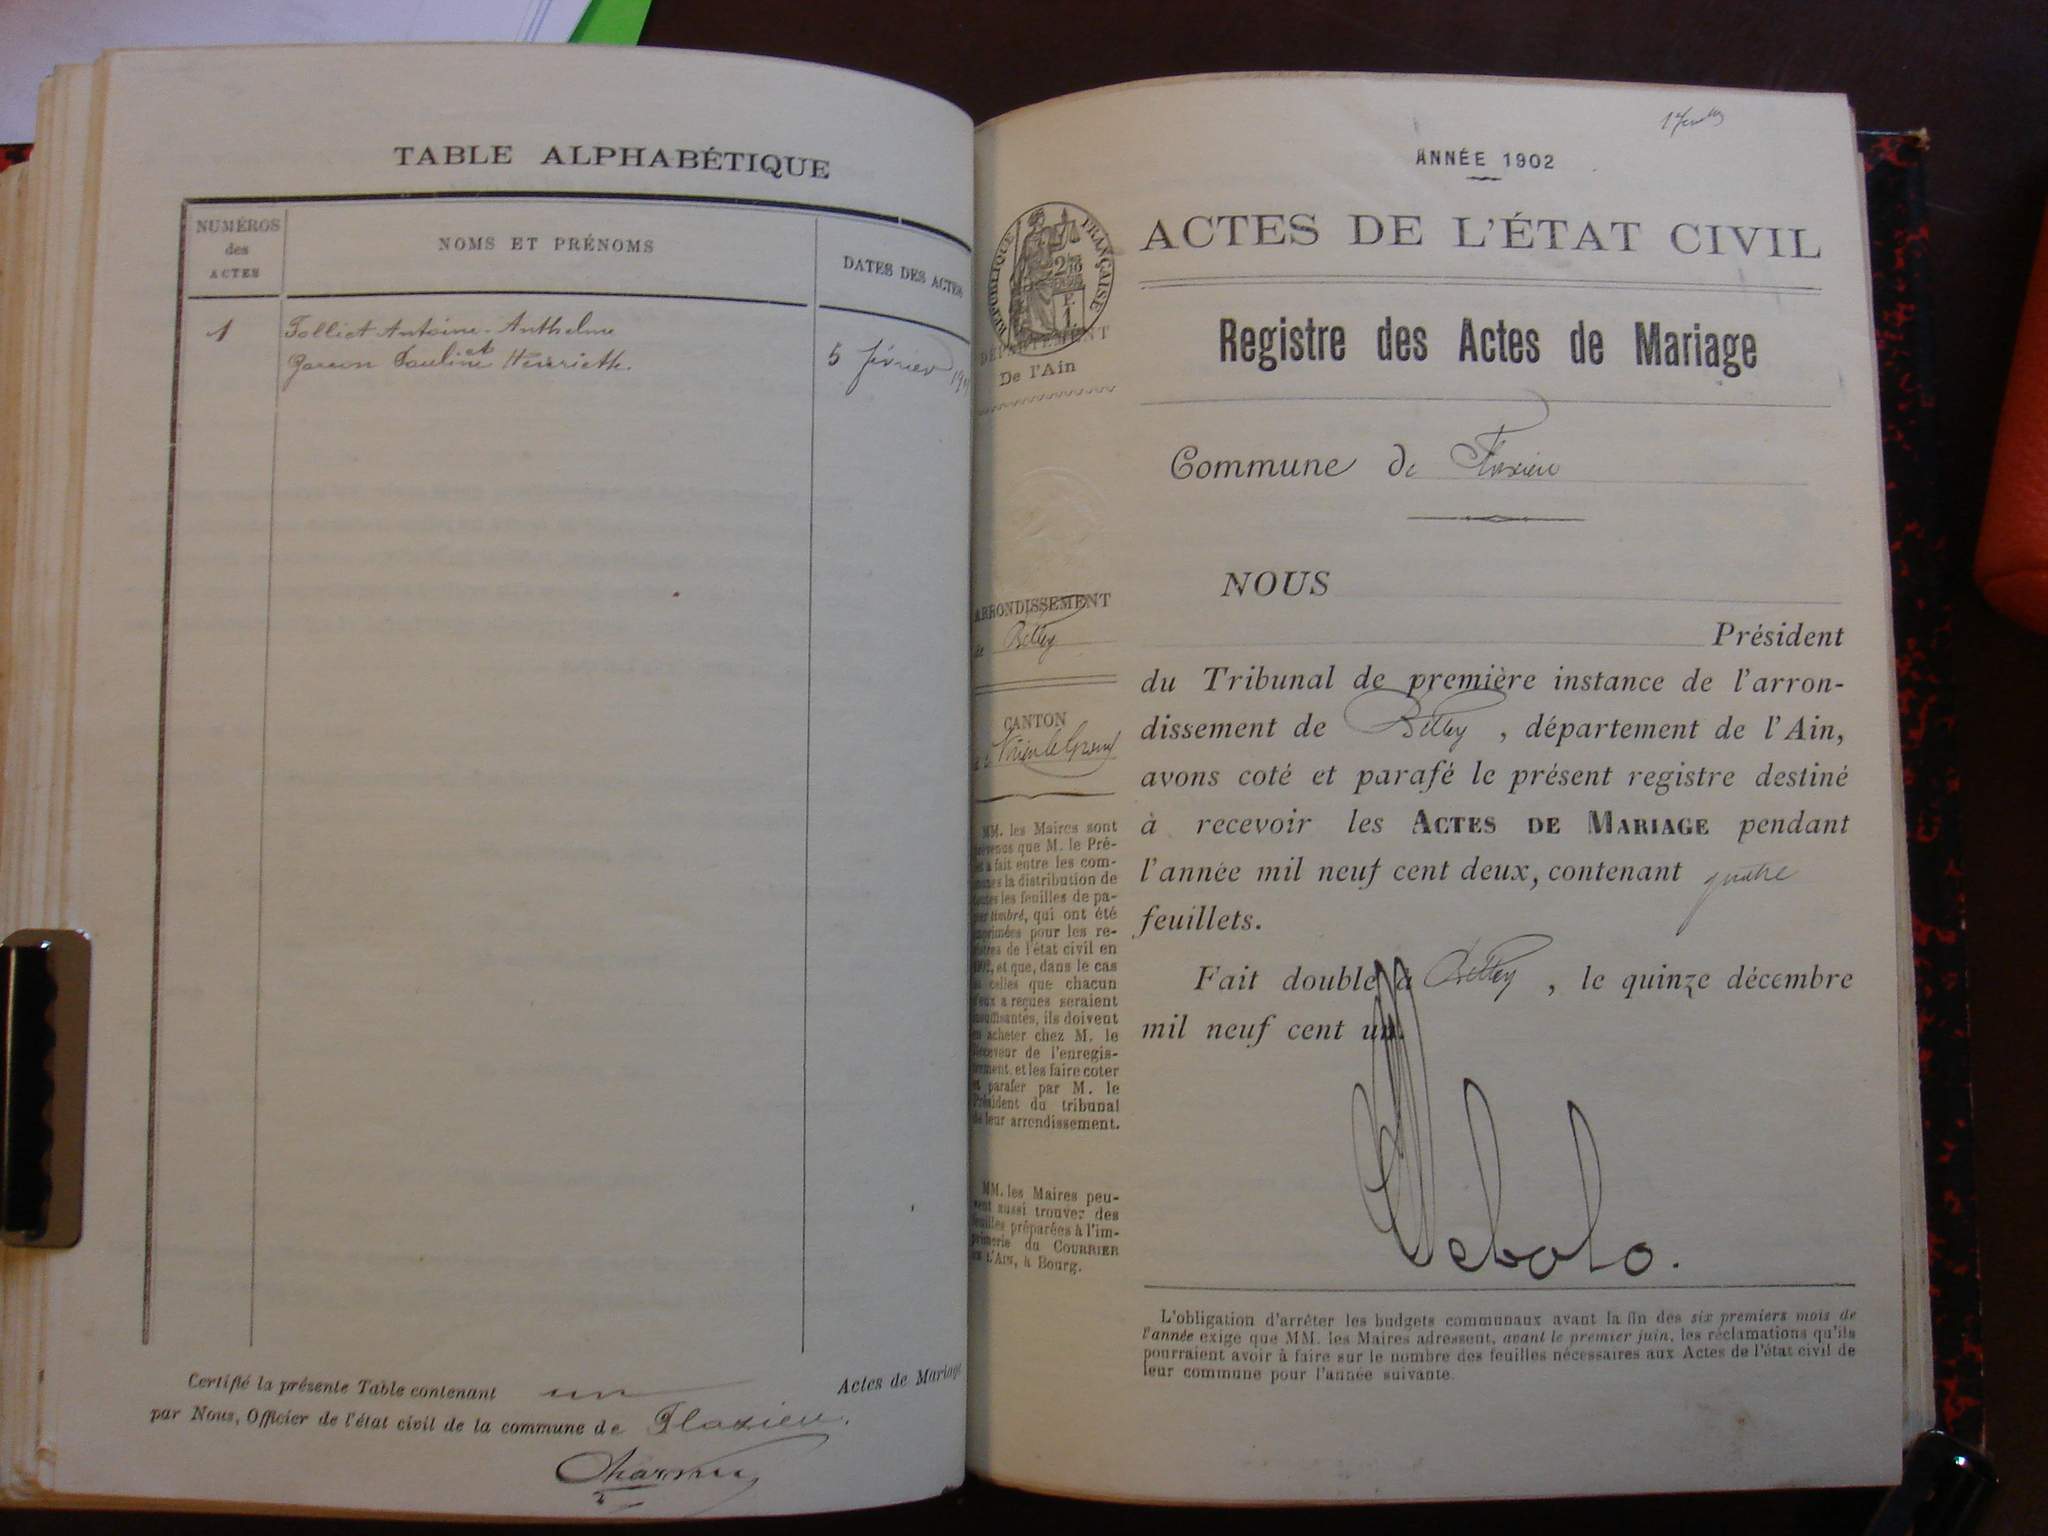 TABLE ALPHABÉTIQUE
NUMÉROS
des
ACTES
NOMS ET PRÉNOMS
DATES DES ACTES
1
Folliet Antoine-Anthelme
et
Pauline Henriette
5 février
Certifié la présente Table contenant un Actes de Mariage
par Nous, Officier de l'état civil de la commune de Flaxieu.
ANNÉE 1902
RÉPUBLIQUE FRANÇAISE
DÉPARTEMENT
De l'Ain
ARRONDISSEMENT
de Belley
CANTON
de Virieu le Grand
MM. les Maires sont
prévenus que M. le Pré-
fet a fait entre les com-
munes la distribution de
toutes les feuilles de pa-
pier timbré, qui ont été
imprimées pour les re-
gistres de l'état civil en
1902, et que, dans le cas
où celles que chacun
d'eux a reçues seraient
insuffisantes, ils doivent
en acheter chez M. le
Receveur de l'enregis-
trement, et les faire coter
et parafer par M. le
Président du tribunal
de leur arrondissement.
MM. les Maires peu-
vent aussi trouver des
feuilles préparées à l'im-
primerie du COURRIER
DE L'AIN, à Bourg.
ACTES DE L'ÉTAT CIVIL
Registre des Actes de Mariage
Commune de Flaxieu
NOUS
Président
du Tribunal de première instance de l'arron-
dissement de Belley, département de l'Ain,
avons coté et parafé le présent registre destiné
à recevoir les ACTES DE MARIAGE pendant
l'année mil neuf cent deux, contenant quatre
feuillets.
Fait double à Belley, le quinze décembre
mil neuf cent un.
L'obligation d'arrêter les budgets communaux avant la fin des six premiers mois de
l'année exige que MM. les Maires adressent, avant le premier juin, les réclamations qu'ils
pourraient avoir à faire sur le nombre des feuilles nécessaires aux Actes de l'état civil de
leur commune pour l'année suivante.